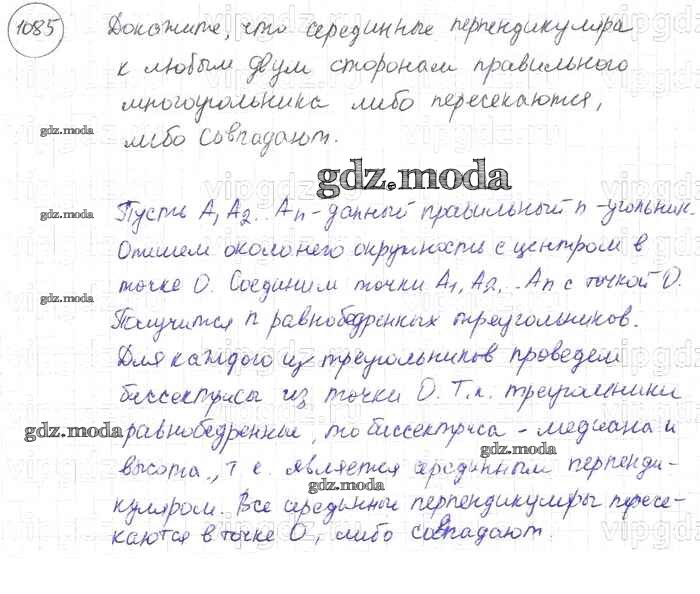 1085 Докажите, что серединные перпендикуляра
к любым двум сторонам правильного
многоугольника либо пересекаются,
gdz.moda
либо совпадают.
gdz.moda
gdz.moda
Пусть A1 A2 .. An - данный правильный n -угольник.
Опишем около него окружность с центром в
точке O. Соединим точки A1, A2, .. An с точкой O.
gdz.moda
Получится n равнобедренных треугольников.
Для каждого из треугольников проведем
биссектрисы из точки O. Т.к. треугольники
gdz.moda
равнобедренные, то биссектриса - медиана и
gdz.moda
высота, т.е. является серединным перпенди-
gdz.moda
куляром. Все серединные перпендикуляры пересе-
каются в точке O, либо совпадают.